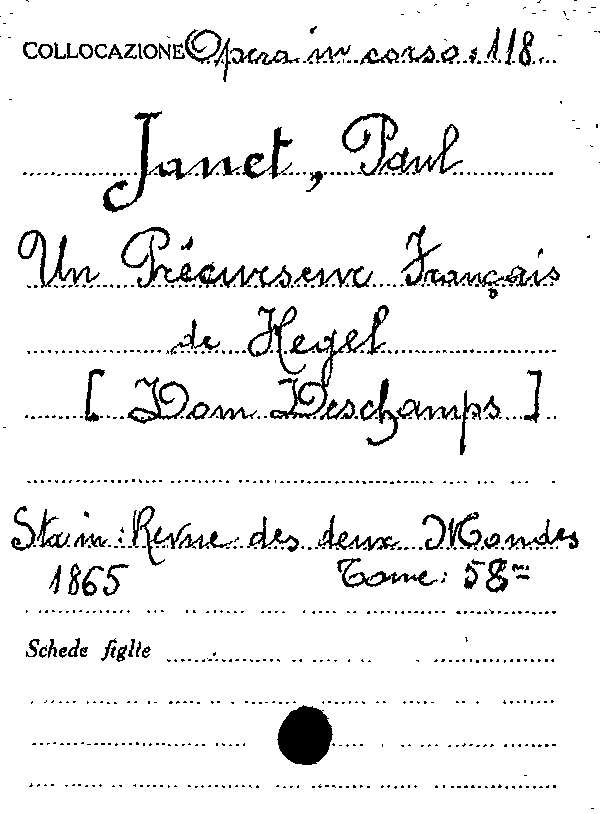 COLLOCAZIONE Opera in corso: 118
Janet, Paul
Un Précurseur Français
de Hegel
[ Dom Deschamps ]
Sta in: Revue des deux Mondes
1865 Tome: 58me
Schede figlie